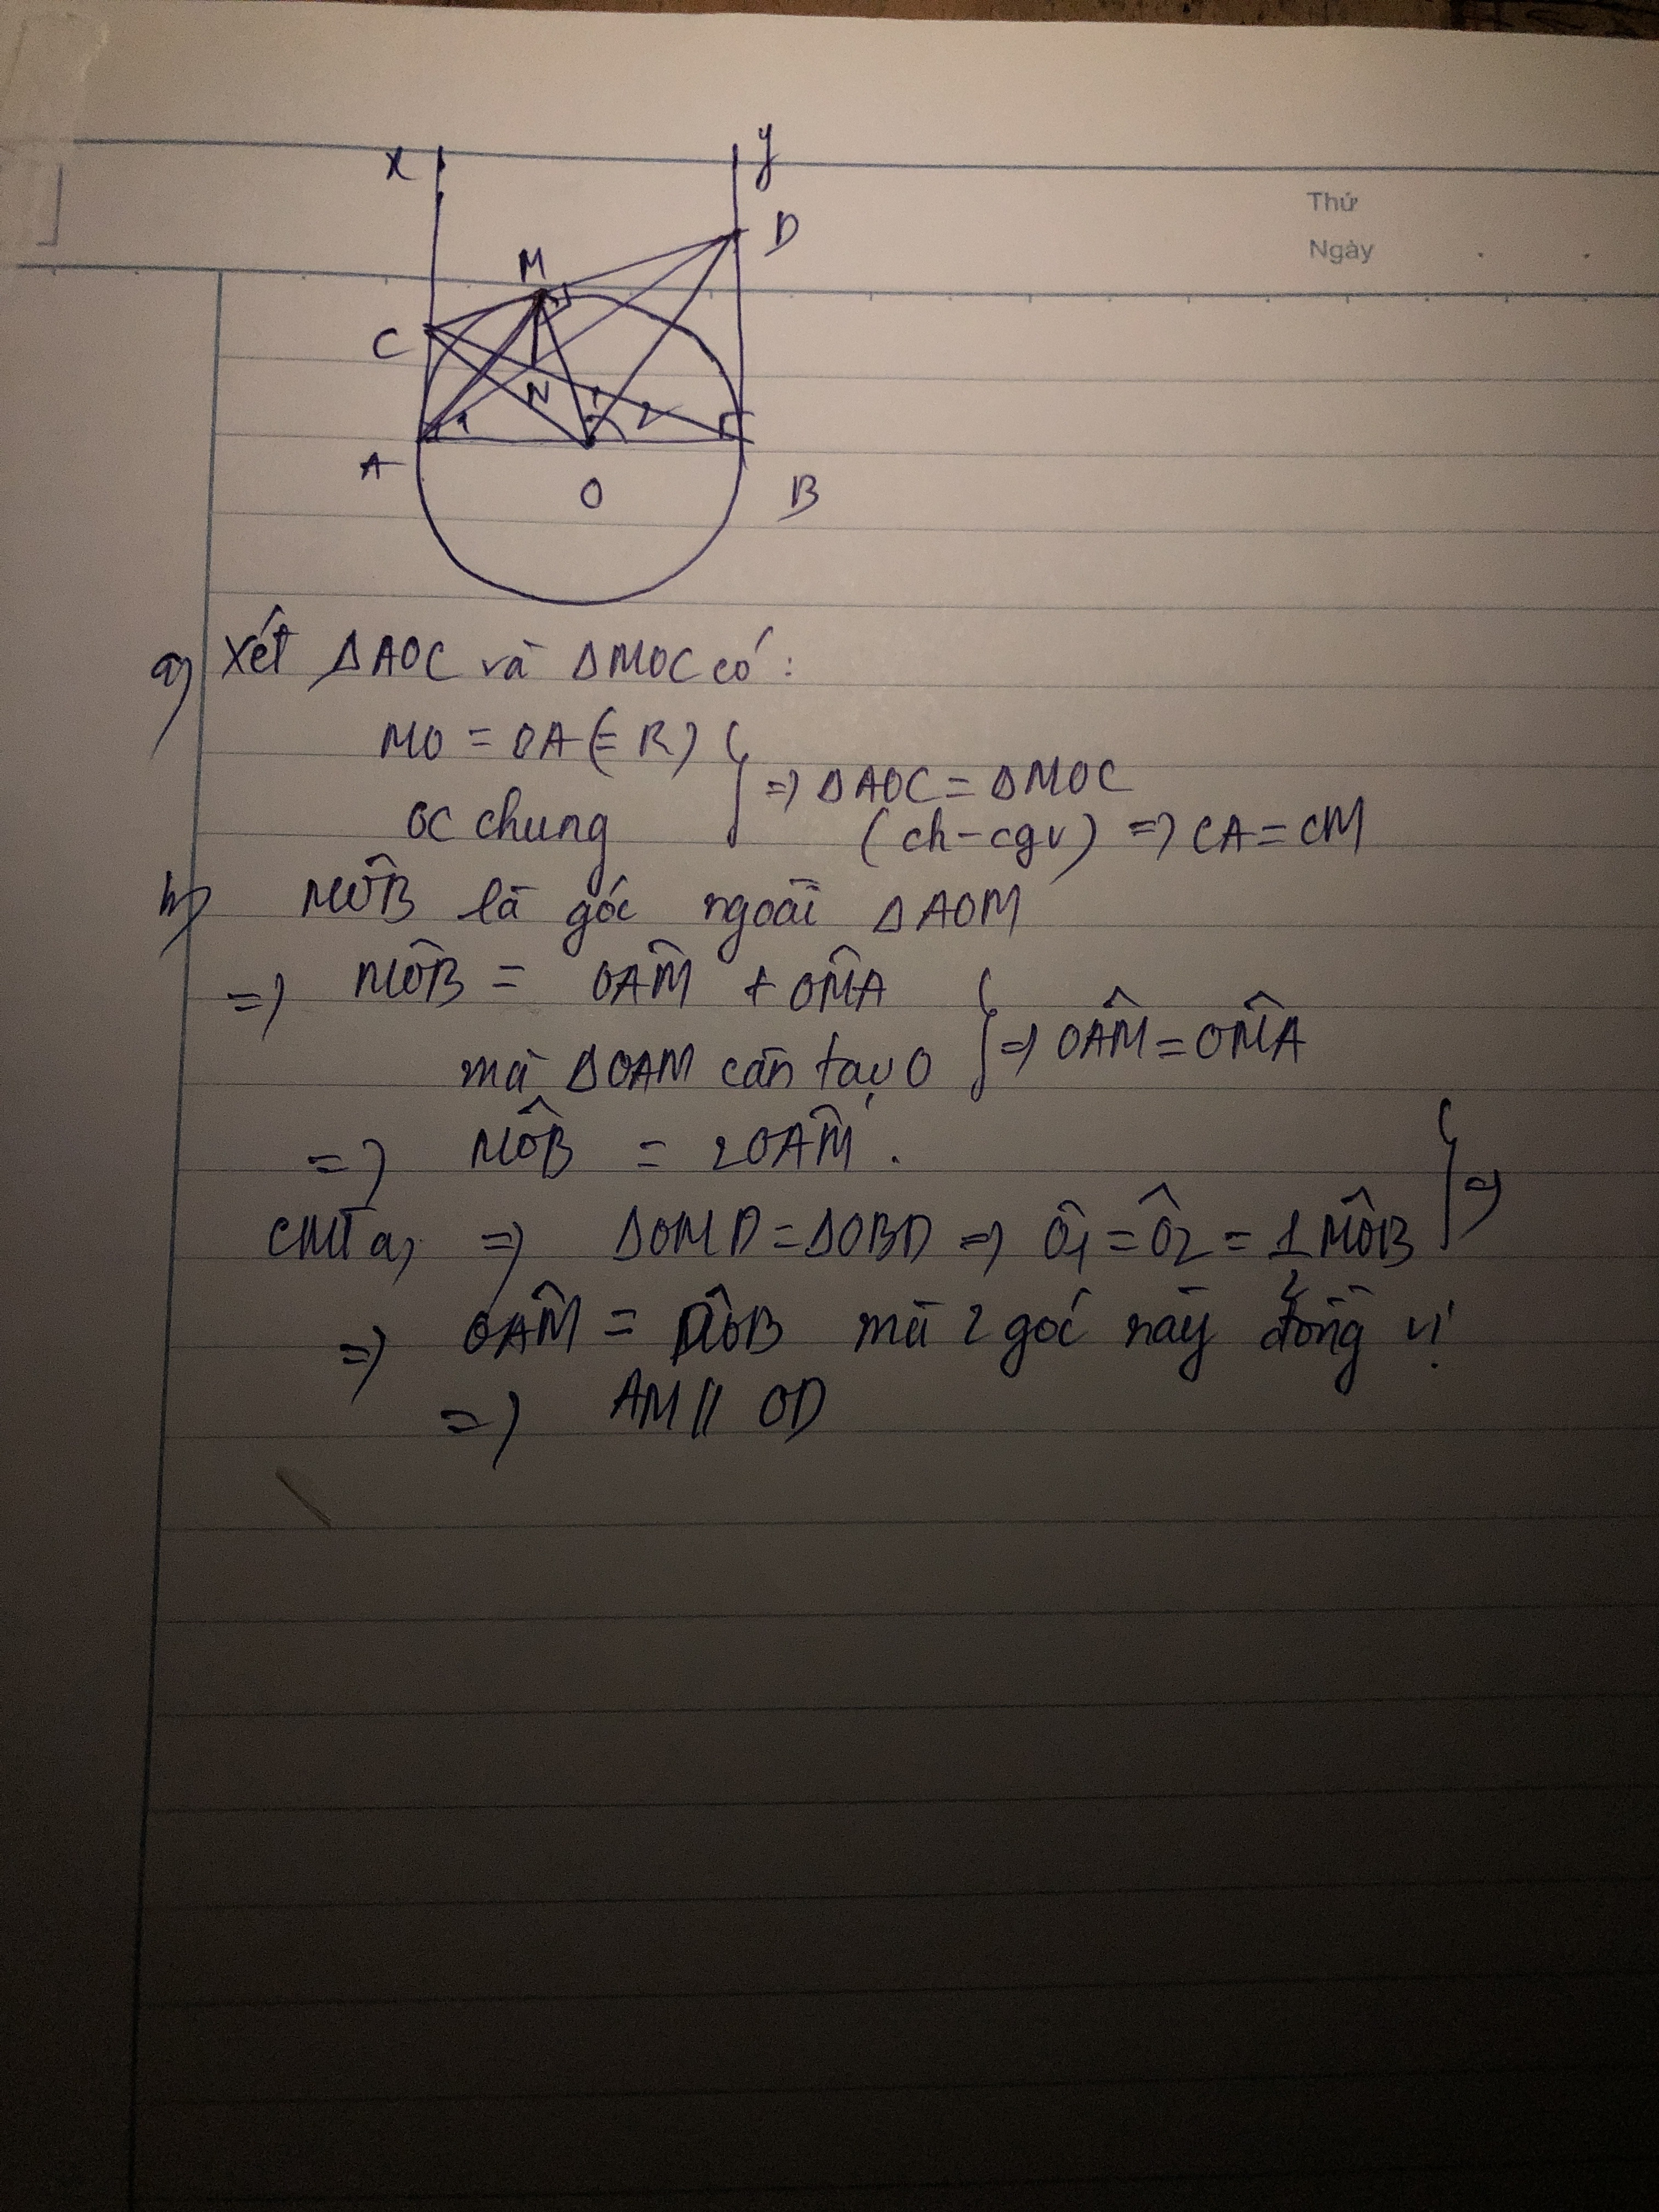 x
y
Thứ
Ngày
D
M
C
N
1
2
1
A
O
B
a) Xét ΔAOC và ΔMOC có:
MO = OA (= R)
OC chung
} => ΔAOC = ΔMOC
(ch-cgv) => CA = CM
b) MÔB là góc ngoài ΔAOM
=> MÔB = OÂM + OM̂A
mà ΔOAM cân tại O } => OÂM = OM̂A
=> MÔB = 2OÂM.
CMT a, => ΔOMD = ΔOBD => Ô1 = Ô2 = 1/2 MÔB } =>
=> OÂM = DÔB mà 2 góc này đồng vị
=> AM // OD